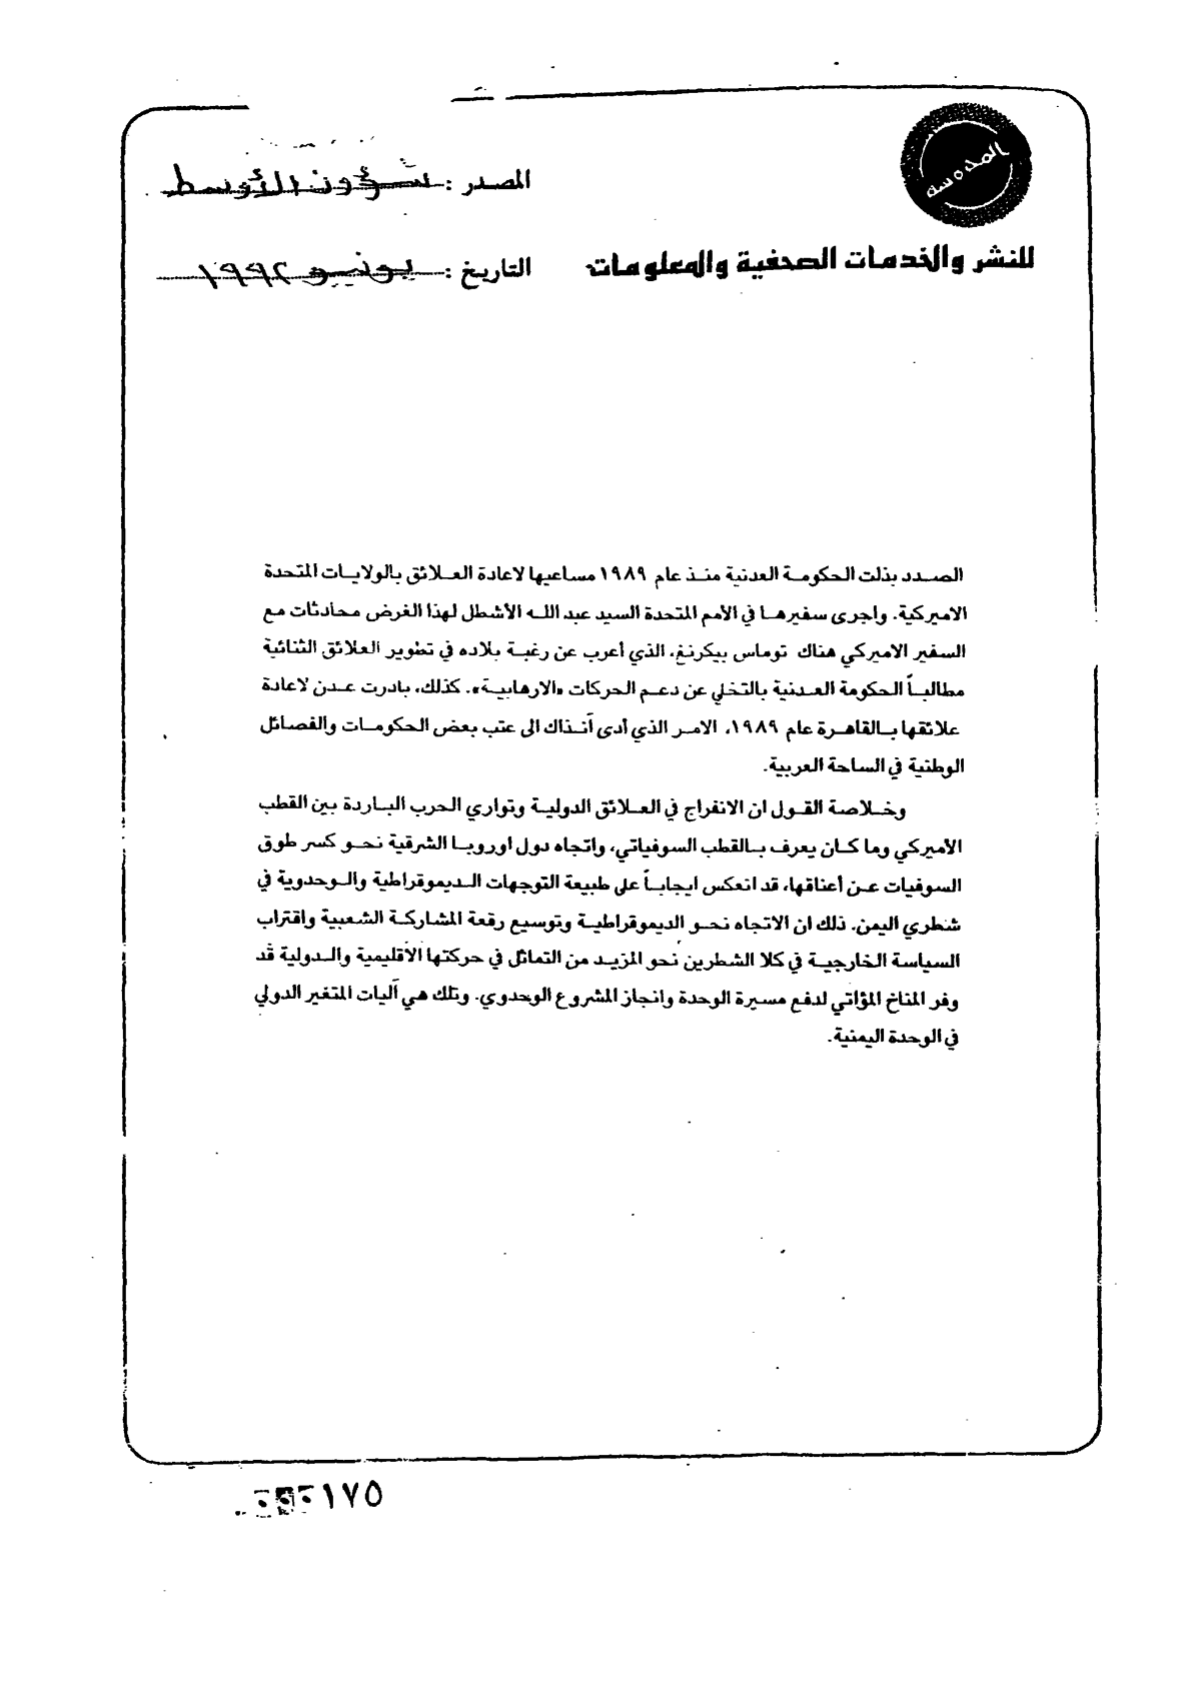 المصدر : شؤون الأوسط
للنشر والخدمات الصحفية والمعلومات
التاريخ : يونيو ١٩٩٢
الصدد بذلت الحكومة العدنية منذ عام ١٩٨٩ مساعيها لاعادة العلائق بالولايات المتحدة
الاميركية. واجرى سفيرها في الأمم المتحدة السيد عبد الله الأشطل لهذا الغرض محادثات مع
السفير الاميركي هناك توماس بيكرنغ، الذي أعرب عن رغبة بلاده في تطوير العلائق الثنائية
مطالباً الحكومة العدنية بالتخلي عن دعم الحركات «الارهابية». كذلك، بادرت عدن لاعادة
علائقها بالقاهرة عام ١٩٨٩، الامر الذي أدى آنذاك الى عتب بعض الحكومات والفصائل
الوطنية في الساحة العربية.
وخلاصة القول ان الانفراج في العلائق الدولية وتواري الحرب الباردة بين القطب
الأميركي وما كان يعرف بالقطب السوفياتي، واتجاه دول اوروبا الشرقية نحو كسر طوق
السوفيات عن أعناقها، قد انعكس ايجاباً على طبيعة التوجهات الديموقراطية والوحدوية في
شطري اليمن. ذلك ان الاتجاه نحو الديموقراطية وتوسيع رقعة المشاركة الشعبية واقتراب
السياسة الخارجية في كلا الشطرين نحو المزيد من التماثل في حركتها الأقليمية والدولية قد
وفر المناخ المؤاتي لدفع مسيرة الوحدة وانجاز المشروع الوحدوي. وتلك هي آليات المتغير الدولي
في الوحدة اليمنية.
١٧٥